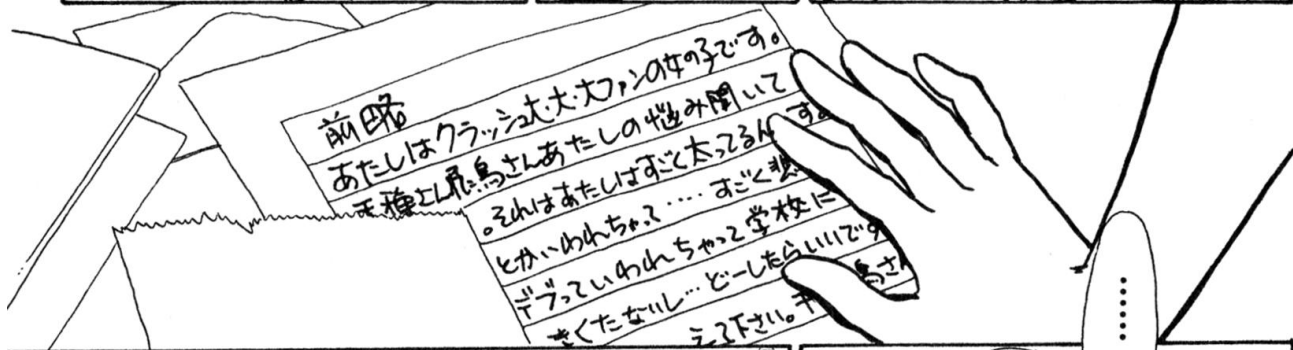 前略
あたしはクラッシュ大・大・大ファンの女の子です。
さん飛鳥さんあたしの悩み聞いて
。それはあたしはすごく太ってるん す。
とかいわれちゃって‥‥すごく悲
デブっていわれちゃって学校に
きくたないし…どーしたらいいです
えて下さい。 鳥さん
……